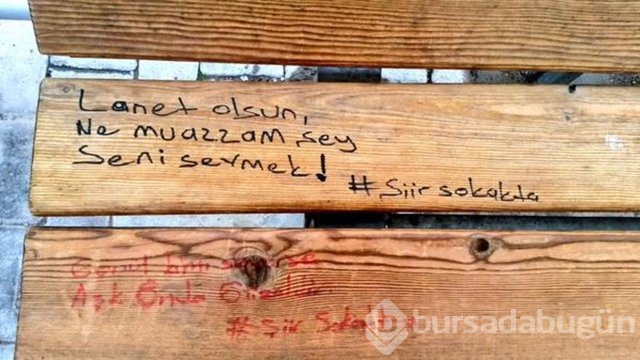 Lanet olsun,
Ne muazzam şey
Seni sevmek!
#Şiir sokakta
Gönül kimi severse
Aşk Onda Güzeldir
#Şiir Sokakta
bursadabugün